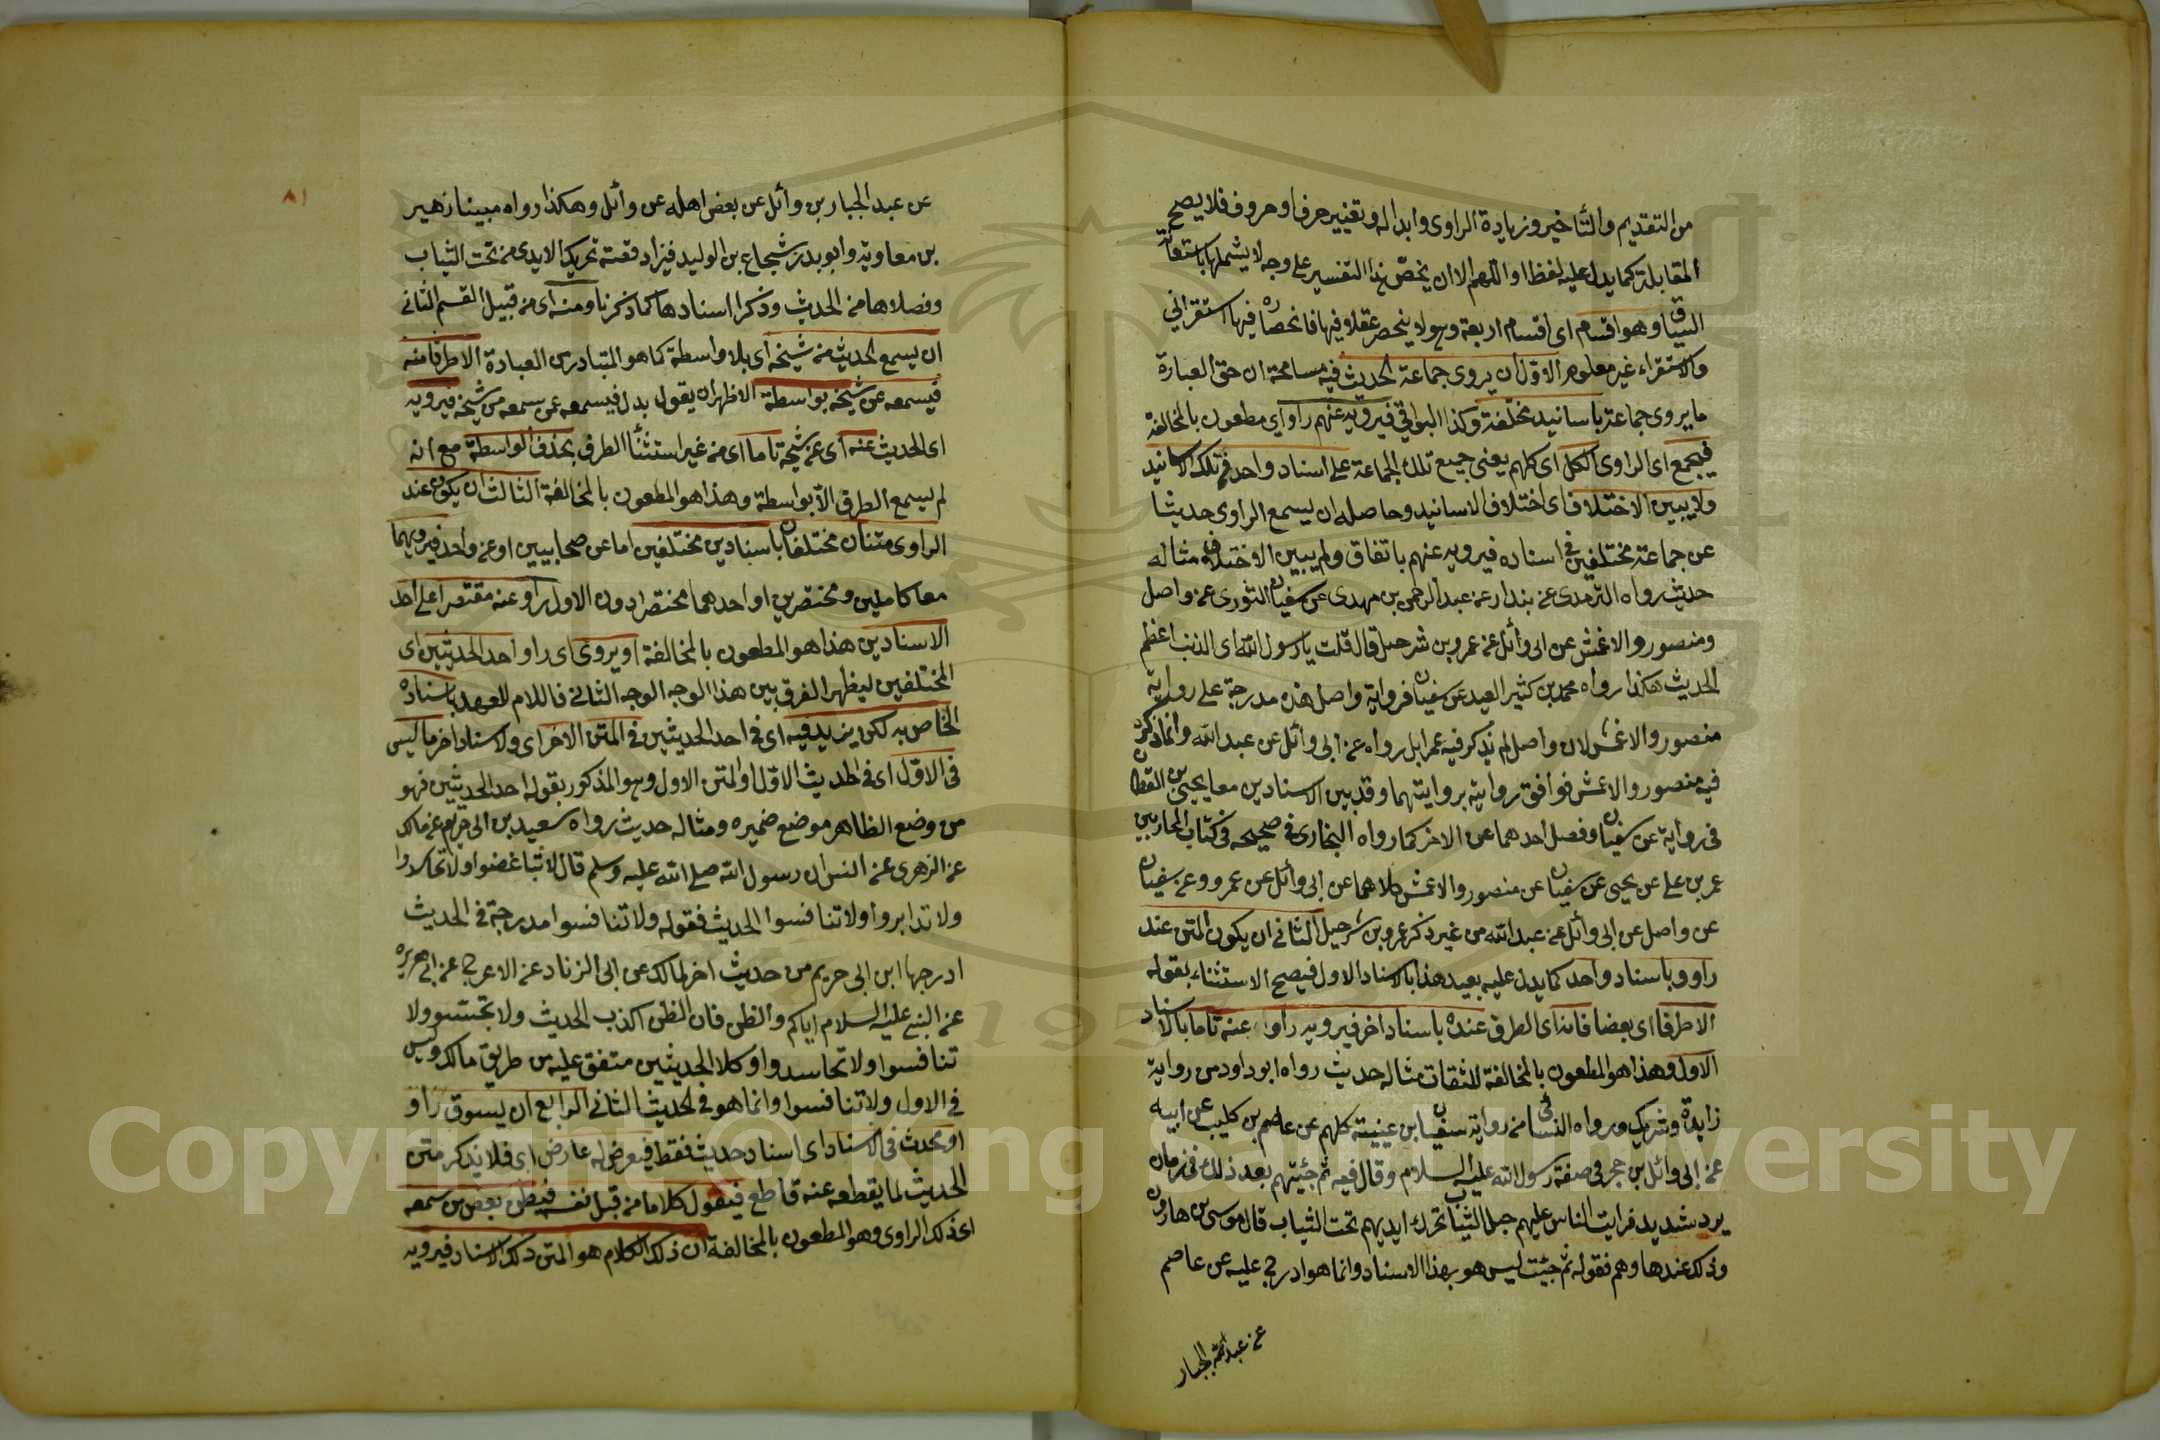 من التقديم والتأخير وزيادة الراوى وابداله وتغيير حرف او حروف فلا يصح
المقابلة كما يدل عليه لفظ او اللهم الا ان يخص هذا التفسير على وجه لا يشملها باستعانة
السياق وهو اقسام اى اقسام اربعة وهو لا ينحصر عقلا فيها فانحصاره فيها استقرائي
والاستقراء غير معلوم الاول ان يروى جماعة الحديث فيه مسامحة ان حق العبارة
ما يروى جماعة باسانيد مختلفة وكذا البواقي فيرويه عنهم راو اي مطعون بالمخالفة
فيجمع اى الراوى الكل اى كلهم يعنى جميع تلك الجماعة على اسناد واحد من تلك الاسانيد
ولا يبين الاختلاف اى اختلاف الاسانيد وحاصله ان يسمع الراوى حديثا
عن جماعة مختلفين في اسناده فيرويه عنهم باتفاق ولم يبين الاختلاف مثاله
حديث رواه الترمذى عن بندار عن عبد الرحمن بن مهدى عن سفيان الثورى عن واصل
ومنصور والاعمش عن ابى وائل عن عمرو بن شرحبيل قال قلت يا رسول الله اى الذنب اعظم
الحديث هكذا رواه محمد بن كثير العبد عن سفيان فرواية واصل هذه مدرجة على رواية
منصور والاعمش لان واصل لم يذكر فيه عمرا بل رواه عن ابى وائل عن عبد الله وانما ذكره
فيه منصور والاعمش فوافق روايته بروايتهما وقد بين الاسنادين معا يحيى بن القطان
في رواية عن سفيان وفصل احدهما عن الاخر كما رواه البخارى في صحيحه في كتاب المحاربين
عمر بن على عن يحيى عن سفيان عن منصور والاعمش كلاهما عن ابى وائل عن عمرو وعن سفيان
عن واصل عن ابى وائل عن عبد الله من غير ذكر عمرو بن شرحبيل الثانى ان يكون المتن عند
راو وباسناد واحد كما يدل عليه بعيد هذا بالاسناد الاول فيصح الاستثناء بقوله
الا طرفا اى بعضا فانه اى الطرق عنده باسناد اخر فيرويه راو عنه تاما بالاسناد
الاول وهذا هو المطعون بالمخالفة للثقات مثاله حديث رواه ابو داود من رواية
زايدة وشريك ورواه النسائى من رواية سفيان بن عيينة كلهم عن عاصم بن كليب عن ابيه
عن ابى وائل بن حجر في صفة رسول الله عليه السلام وقال فيه ثم جئتهم بعد ذلك في زمان
برد شديد فرايت الناس عليهم جل الثياب تحرك ايديهم تحت الثياب قال موسى بن هارون
وذلك عندها وهم فقوله ثم جئت ليس هو بهذا الاسناد وانما هو ادرج عليه عن عاصم
عن عبد الجبار
٨١
عن عبد الجبار بن وائل عن بعض اهله عن وائل وهكذا رواه مبينا زهير
بن معاوية وابو بدر شجاع بن الوليد فيزاد قصة تحريك الايدى من تحت الثياب
وفصلاها من الحديث وذكرا اسنادها كما ذكرنا ومنه اى من قبيل القسم الثانى
ان يسمع الحديث من شيخه اى بلا واسطة كما هو المتبادر من العبادة الا طرفا منه
فيسمعه عن شيخه بواسطة الاظهر ان يقول بدل فيسمعه عمن سمعه من شيخه فيرويه
اى الحديث عنه اى عن شيخه تاما اى من غير استثناء الطرق بحذف الواسطة مع انه
لم يسمع الطرق الا بواسطة وهذا هو المطعون بالمخالفة الثالث ان يكون عند
الراوى متنان مختلفان باسنادين مختلفين اما عن صحابيين او عن واحد فيرويهما
معا كاملين ومختصرين او احدهما مختصرا دون الاول راو عنه مقتصرا على احد
الاسنادين هذا هو المطعون بالمخالفة او يروى اى راو احد الحديثين اى
المختلفين ليظهر الفرق بين هذا الوجه الوجه الثانى فاللام للعهد باسناده
الخاص به لكن يزيد فيه اى في احد الحديثين في المتن الاخر اى ولاسناد اخر ما ليس
في الاول اى في الحديث الاول او المتن الاول وهو المذكور بقوله احد الحديثين فهو
من وضع الظاهر موضع ضميره ومثاله حديث رواه سعيد بن ابى مريم عن مالك
عن الزهرى عن انس ان رسول الله صلى الله عليه وسلم قال لا تباغضوا ولا تحاسدوا
ولا تدابروا ولا تنافسوا الحديث فقوله ولا تنافسوا مدرجة في الحديث
ادرجها ابن ابى مريم من حديث اخر لمالك عن ابى الزناد عن الاعرج عن ابى هريرة
عن النبى عليه السلام اياكم والظن فان الظن اكذب الحديث ولا تجسسوا ولا
تنافسوا ولا تحاسدوا وكلا الحديثين متفق عليه من طريق مالك وليس
في الاول ولا تنافسوا وانما هو في الحديث الثانى الرابع ان يسوق راو
او محدث في الاسناد اى اسناد حديث فقط فيعرض له عارض اى فلا يذكر متن
الحديث لما يقطعه عنه قاطع فيقول كلاما من قبل نفسه فيظن بعض من سمعه
اى ذلك الراوى وهو المطعون بالمخالفة ان ذلك الكلام هو المتن ذلك الاسناد فيرويه